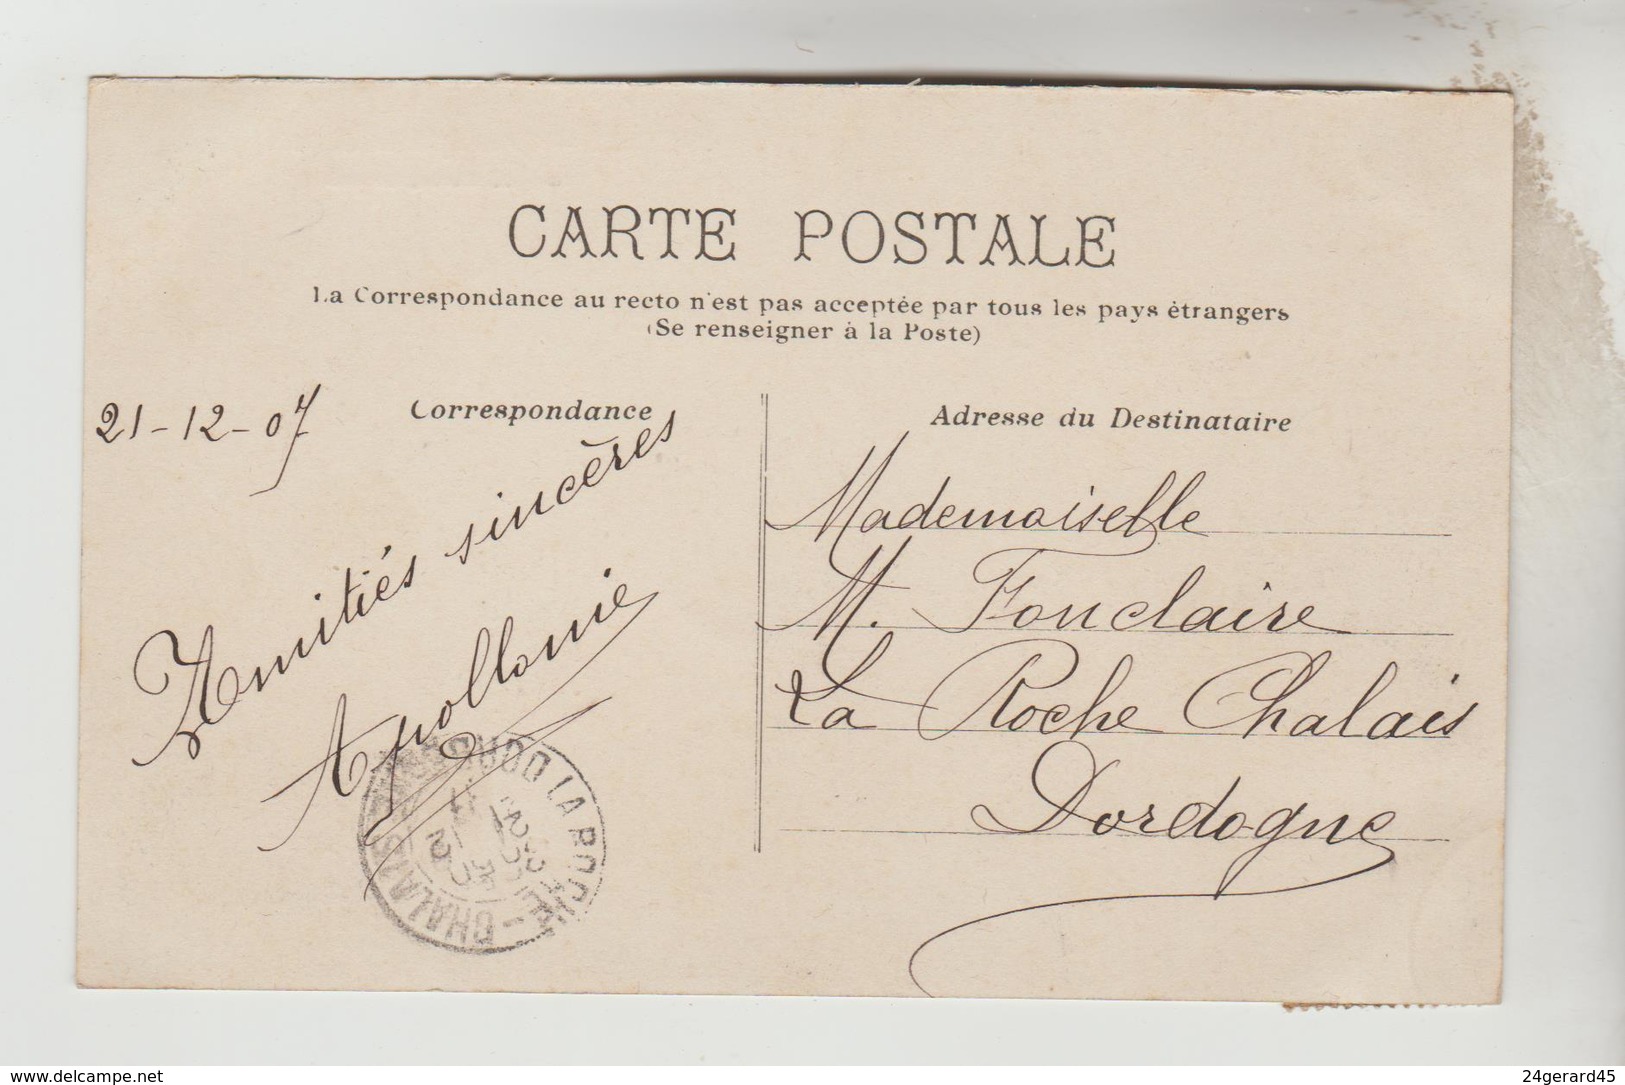 CARTE POSTALE
La Correspondance au recto n'est pas acceptée par tous les pays étrangers
(Se renseigner à la Poste)
21-12-07
Correspondance
Amitiés sincères
Apollonie
LA ROCHE-CHALAIS
Adresse du Destinataire
Mademoiselle
M. Fonclaire
La Roche Chalais
Dordogne
https://www.delcampe.net
24gerard45